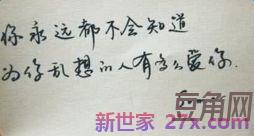 你永远都不会知道
为你乱想的人有多么爱你.
豆角网
新世家 27-3.com